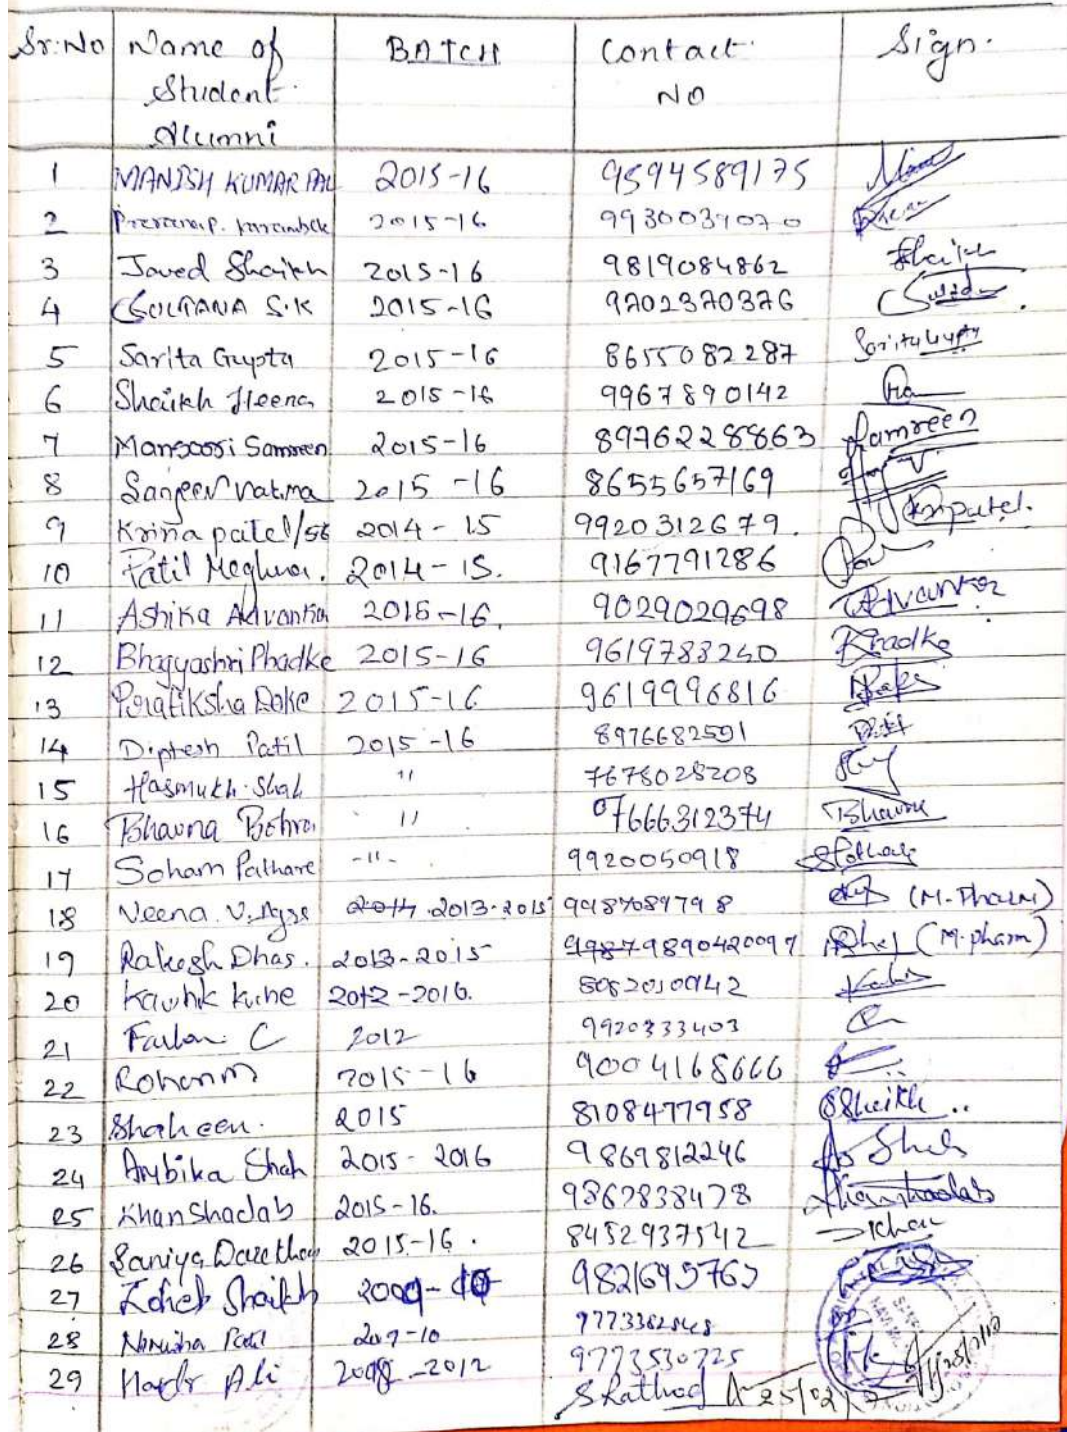 Sr.No Name of Student Alumni BATCH Contact NO Sign.
1 MANISH KUMAR PAL 2015-16 9594589175
2 2015-16 9930034070
3 Javed Shaikh 2015-16 9819084862 Shaikh
4 SULTANA S.K 2015-16 9702370376
5 Sarita Gupta 2015-16 8655082287 Sarita Gupta
6 Shaikh Heena 2015-16 9967890142
7 Mansoori Samreen 2015-16 8976228863 Samreen
8 Sanjeev Vatma 2015-16 8655657169
9 Krina patel/56 2014-15 9920312679. Knpatel.
10 Patil Meghna. 2014-15. 9167791286
11 Ashika Advankar 2015-16. 9029029698 Advankar
12 Bhagyashri Phadke 2015-16 9619783240 Phadke
13 Pratiksha Doke 2015-16 9619996816
14 Diptesh Patil 2015-16 8976682591
15 Hasmukh. Shah " 7678028208
16 Bhavna Bohra " 07666312374 Bhavna
17 Soham Pathare -"- 9920050918
18 Neena. V. 2013-2015 9987089798 (M-Pharm)
19 Rakesh Dhas. 2013-2015 9890420097 (M.pharm)
20 2012-2016. 8082010942
21 C 2012 9920333403
22 Rohanm 2015-16 9004168666
23 Shaheen. 2015 8108477958 SSheikh..
24 Ambika Shah 2015-2016 9869812246
25 Khan Shadab 2015-16. 9867838478 Khanshadab
26 Saniya 2015-16. 8452937542 Khan
27 Zoheb Shaikh 2009-10
28 Patil 2009-10
29 Ali 2008-2012 9773530725
SRathod 25/02/